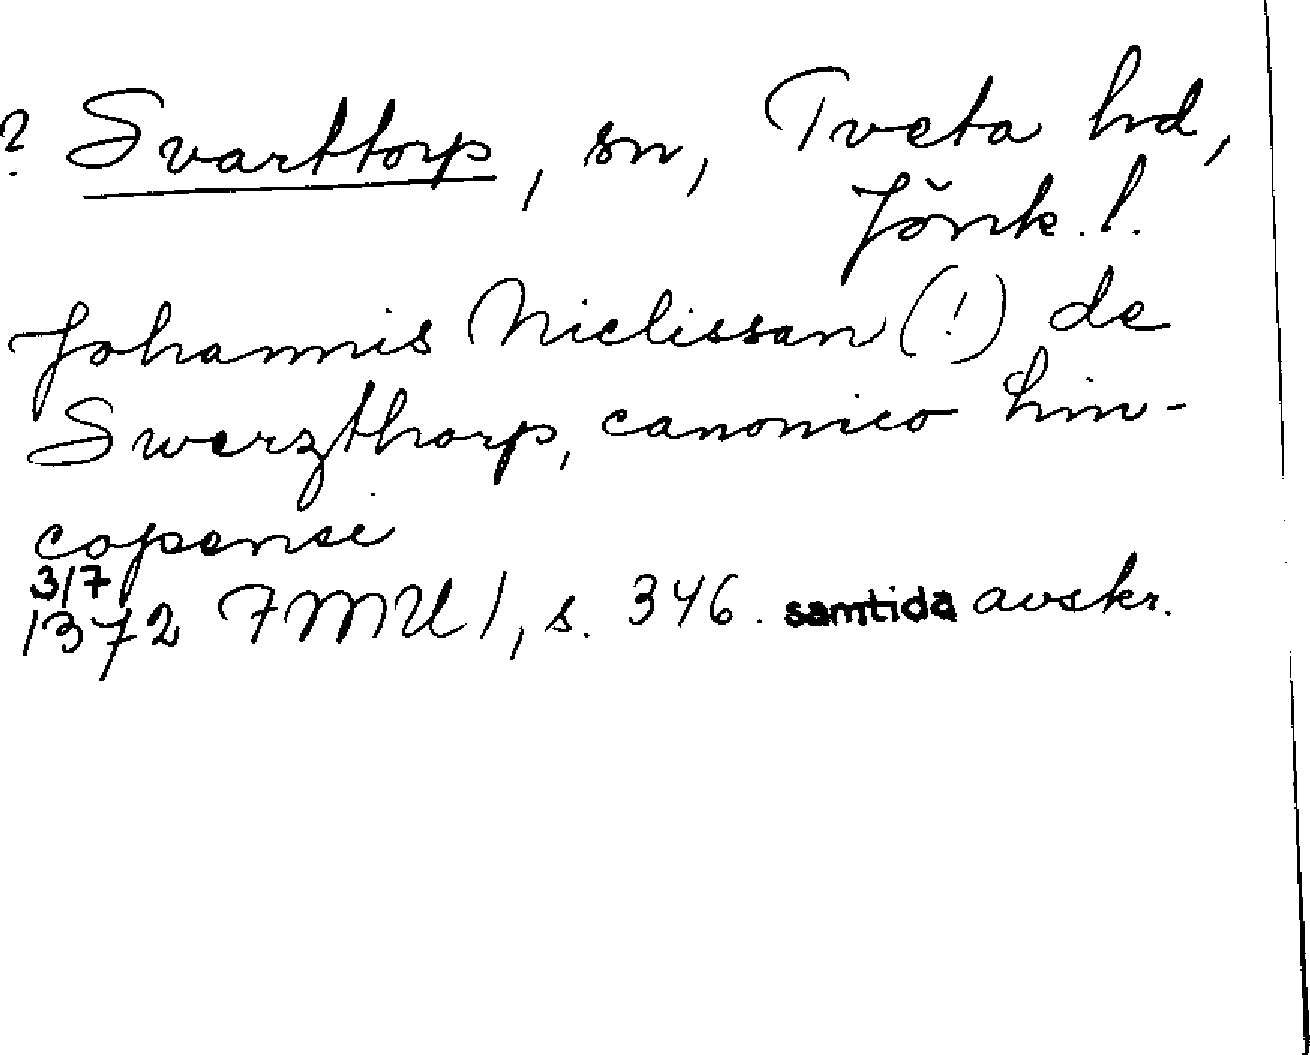 ? Svarttorp, sn, Tveta hd,
Jönk. l.
Johannis Nielissan (!) de
Swerzthorp, canonico lin-
copensi
3/7
1372 FMU 1, s. 346. samtida avskr.